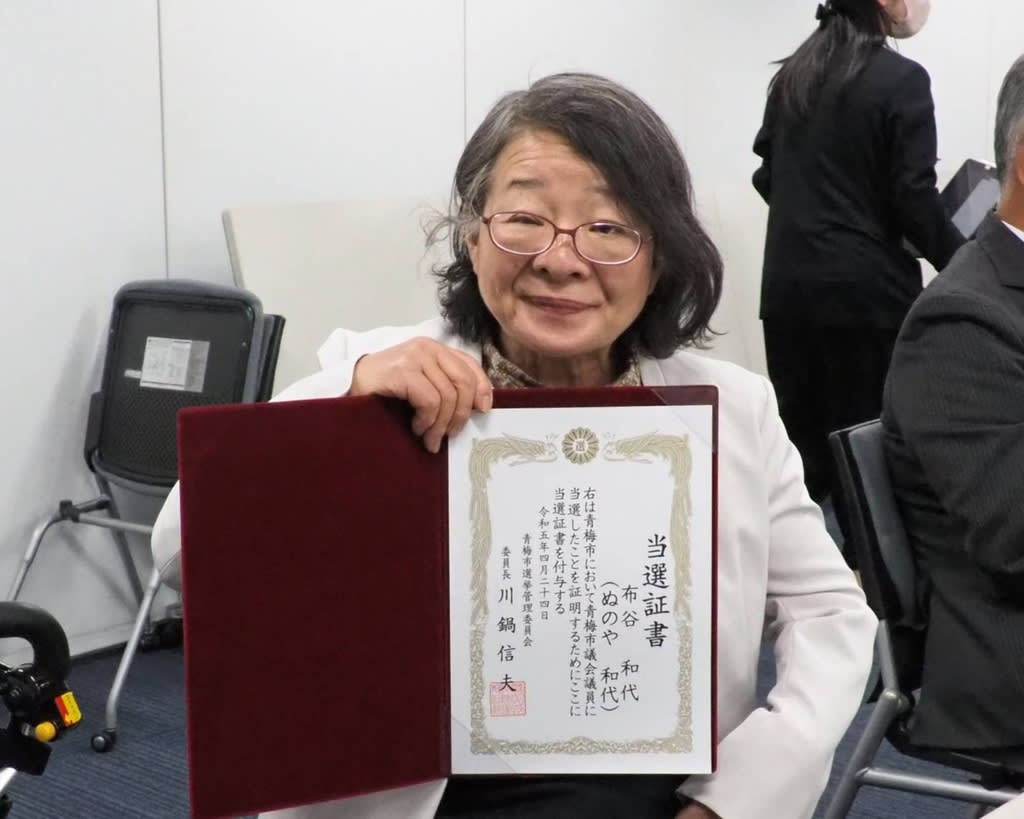 選
当選証書
布谷 和代
(ぬのや 和代)
右は青梅市において青梅市議会議員に
当選したことを証明するためにここに
当選証書を付与する
令和五年四月二十四日
青梅市選挙管理委員会
委員長 川鍋信夫